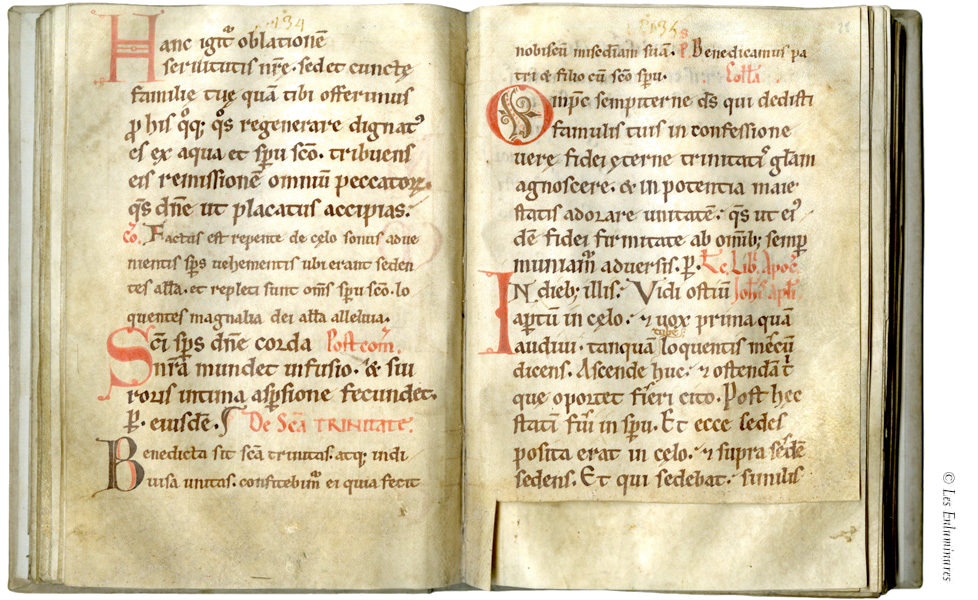 134
Hanc igit᷑ oblationē
seruitutis nr̄e. sed et cunctę
familię tuę quā tibi offerimus
ꝓ his q̊q; q̊s regenerare dignat᷒
es ex aqua et sp̄u sc̄o. tribuens
eis remissionē omniū peccatoꝝ.
q̄s dn̄e ut placatus accipias.
Co. Factus est repente de cęlo sonus adue
nientis sp̄s uehementis ubi erant seden
tes all̄a. et repleti sunt om̄s sp̄u sc̄o. lo
quentes magnalia dei all̄a alleluia.
Sc̄i sp̄s dn̄e corda Postcom̄.
nr̄a mundet infusio. & sui
roris intima asp̄sione fecundet.
P. eiusdē. De Sc̄a TRINITATE.
Benedicta sit sc̄a trinitas. atq; indi
uisa unitas. confitebim᷒ ei quia fecit
135
nobiscū mis̄ediam suā. Ps. Benedicamus pa
tri & filio cū sc̄o sp̄u. Coll̄a
Omp̄c sempiterne ds̄ qui dedisti
famulis tuis in confessione
uere fidei ęterne trinitatis gl̄am
agnoscere. & in potentia maie
statis adorare unitatē. q̄s ut ei᷒
dē fidei firmitate ab omīb; semp̄
muniam᷑ aduersis. P. Lc̄. Lib. Apoc̄.
IN dieb; illis. Vidi ostiū Joh̄is apl̄i
ap̄tum in cęlo. & uox prima quā
audiui. tanquā tubę loquentis mecū
dicens. Ascende huc. & ostendā t̄
que oportet fieri cito. Post hec
statī fui in sp̄u. Et ecce sedes
posita erat in celo. & supra sedē
sedens. Et qui sedebat. similis
© Les Enluminures